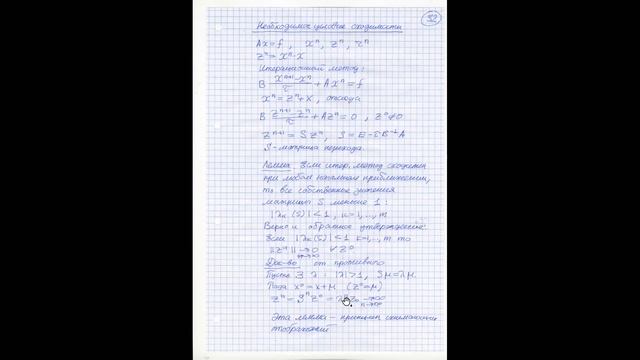 32
Необходимое условие сходимости
Ax=f, xⁿ, zⁿ, rⁿ
zⁿ = xⁿ-x
Итерационный метод:
B (xⁿ⁺¹-xⁿ)/τ + Axⁿ = f
xⁿ = zⁿ+x, отсюда
B (zⁿ⁺¹-zⁿ)/τ + Azⁿ = 0, z⁰≠0
zⁿ⁺¹ = S zⁿ, S = E-τB⁻¹A
S-матрица перехода.
Лемма Если итер. метод сходится
при любом начальном приближении,
то все собственные значения
матрицы S меньше 1:
|λₖ(S)|<1, k=1,...,m
Верно и обратное утверждение:
Если |λₖ(S)|<1 k=1,...,m то
||zⁿ|| → 0 ∀z⁰
n→∞
Док-во от противного
Пусть ∃ λ: |λ|>1, Sμ=λμ
Тогда x⁰=x+μ (z⁰=μ)
zⁿ = Sⁿz⁰ = λⁿz₀ → ∞
n→∞
Эта лемма - принцип сжимающих
отображений